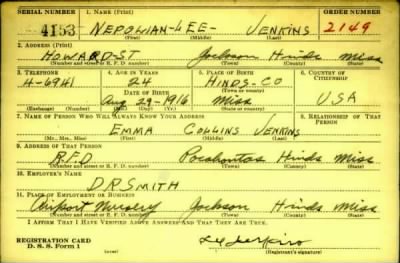 SERIAL NUMBER 1. NAME (Print) ORDER NUMBER
4153 NEPOLWIAN-LEE- JENKINS 2149
(First) (Middle) (Last)
2. ADDRESS (Print)
HOWARD-ST Jackson Hinds Miss
(Number and street or R. F. D. number) (Town) (County) (State)
3. TELEPHONE 4. AGE IN YEARS 5. PLACE OF BIRTH 6. COUNTRY OF CITIZENSHIP
4-6941 24 HINDS-CO
DATE OF BIRTH (Town or county)
Aug 29-1916 Miss USA
(Exchange) (Number) (Mo.) (Day) (Yr.) (State or country)
7. NAME OF PERSON WHO WILL ALWAYS KNOW YOUR ADDRESS 8. RELATIONSHIP OF THAT PERSON
EMMA COLLINS JENKINS
(Mr., Mrs., Miss) (First) (Middle) (Last)
9. ADDRESS OF THAT PERSON
R.F.D Pocahontas Hinds Miss
(Number and street or R. F. D. number) (Town) (County) (State)
10. EMPLOYER'S NAME
D.R.SMITH
11. PLACE OF EMPLOYMENT OR BUSINESS
Airport Nursery Jackson Hinds Miss
(Number and street or R. F. D. number) (Town) (County) (State)
I AFFIRM THAT I HAVE VERIFIED ABOVE ANSWERS AND THAT THEY ARE TRUE.
REGISTRATION CARD
D. S. S. Form 1 (Registrant's signature)